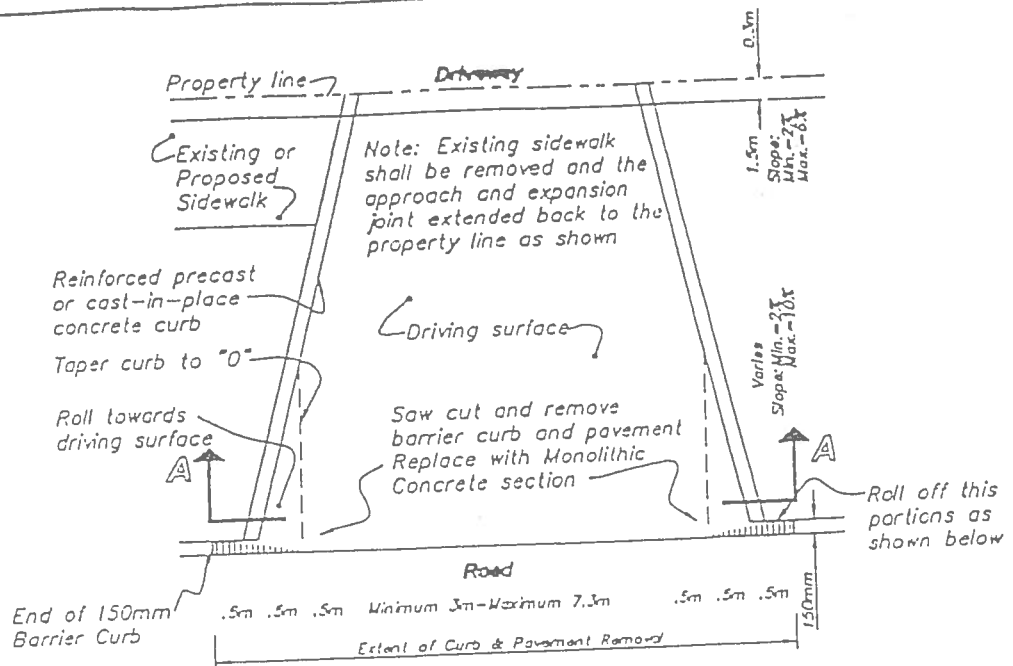 Driveway
Property line
0.3m
Existing or
Proposed
Sidewalk
Note: Existing sidewalk
shall be removed and the
approach and expansion
joint extended back to the
property line as shown
1.5m
Slope:
Min.-2%
Max.-6%
Reinforced precast
or cast-in-place
concrete curb
Driving surface
Taper curb to "0"
Varies
Slope: Min.-2%
Max.-10%
Roll towards
driving surface
Saw cut and remove
barrier curb and pavement
Replace with Monolithic
Concrete section
A
A
Roll off this
portions as
shown below
Road
End of 150mm
Barrier Curb
.5m .5m .5m Minimum 3m-Maximum 7.3m .5m .5m .5m
150mm
Extent of Curb & Pavement Removal